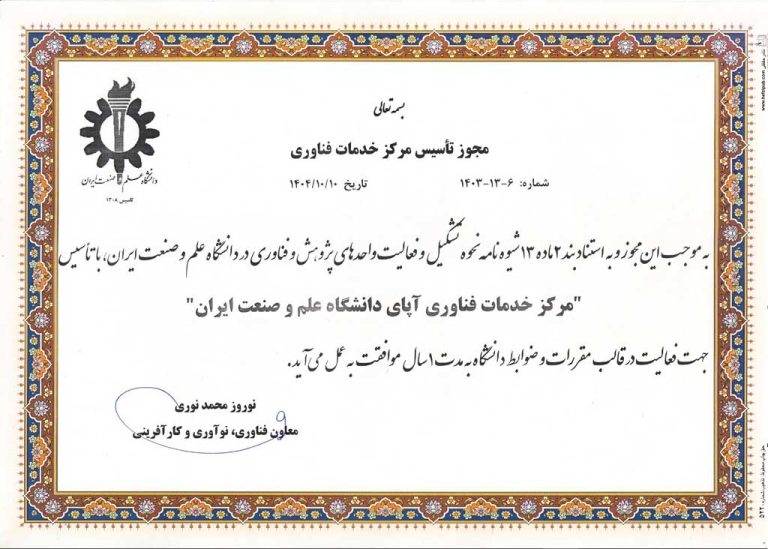 بسمه تعالی
مجوز تأسیس مرکز خدمات فناوری
شماره: ۶-۱۳-۱۴۰۳ تاریخ ۱۴۰۴/۱۰/۱۰
دانشگاه علم و صنعت ایران
تأسیس ۱۳۰۸
به موجب این مجوز و به استناد بند ۲ ماده ۱۳ شیوه نامه نحوه تشکیل و فعالیت واحدهای پژوهش و فناوری در دانشگاه علم و صنعت ایران، با تأسیس
"مرکز خدمات فناوری آپای دانشگاه علم و صنعت ایران"
جهت فعالیت در قالب مقررات و ضوابط دانشگاه به مدت ۱ سال موافقت به عمل می‌آید.
نوروز محمد نوری
معاون فناوری، نوآوری و کارآفرینی